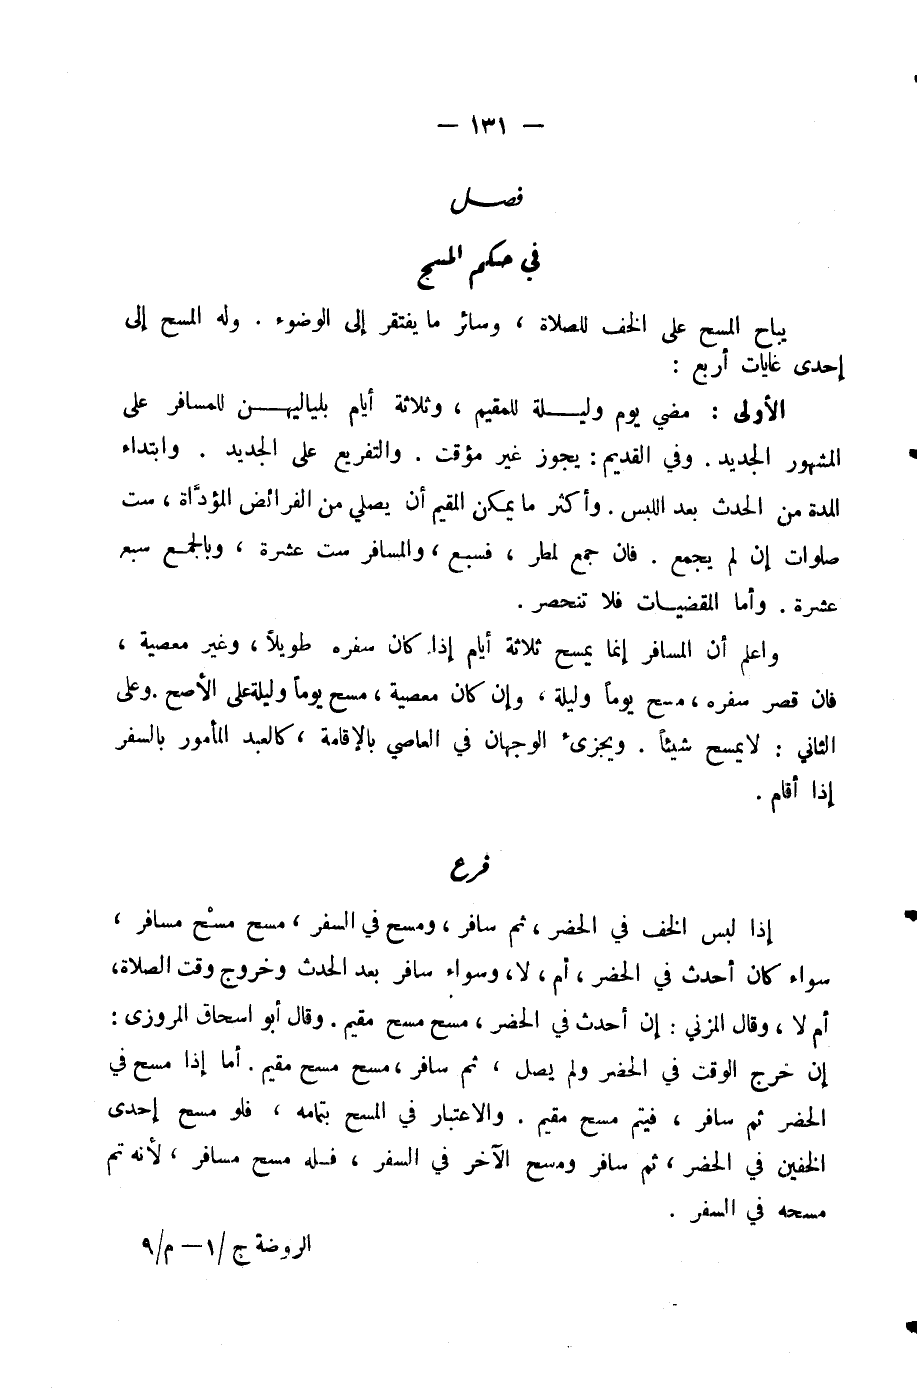 — ١٣١ —
فصــل
في حكم المسح
يباح المسح على الخف للصلاة ، وسائر ما يفتقر إلى الوضوء . وله المسح إلى
إحدى غايات أربع :
الأولى : مضي يوم وليــلة للمقيم ، وثلاثة أيام بلياليهــن للمسافر على
المشهور الجديد . وفي القديم : يجوز غير مؤقت . والتفريع على الجديد . وابتداء
المدة من الحدث بعد اللبس . وأكثر ما يمكن المقيم أن يصلي من الفرائض المؤدَّاة ، ست
صلوات إن لم يجمع . فان جمع لمطر ، فسبع ، والمسافر ست عشرة ، وبالجمع سبع
عشرة . وأما المقضيات فلا تنحصر .
واعلم أن المسافر إنما يمسح ثلاثة أيام إذا كان سفره طويلاً ، وغير معصية ،
فان قصر سفره ، مسح يوماً وليلة ، وإن كان معصية ، مسح يوماً وليلة على الأصح . وعلى
الثاني : لا يمسح شيئاً . ويجزىء الوجهان في العاصي بالإقامة ، كالعبد المأمور بالسفر
إذا أقام .
فرع
إذا لبس الخف في الحضر ، ثم سافر ، ومسح في السفر ، مسح مسْح مسافر ،
سواء كان أحدث في الحضر ، أم ، لا ، وسواء سافر بعد الحدث وخروج وقت الصلاة ،
أم لا ، وقال المزني : إن أحدث في الحضر ، مسح مسح مقيم . وقال أبو اسحاق المروزى :
إن خرج الوقت في الحضر ولم يصل ، ثم سافر ، مسح مسح مقيم . أما إذا مسح في
الحضر ثم سافر ، فيتم مسح مقيم . والاعتبار في المسح بتمامه ، فلو مسح إحدى
الخفين في الحضر ، ثم سافر ومسح الآخر في السفر ، فــله مسح مسافر ، لأنه تم
مسحه في السفر .
الروضة ج /١ — م/٩